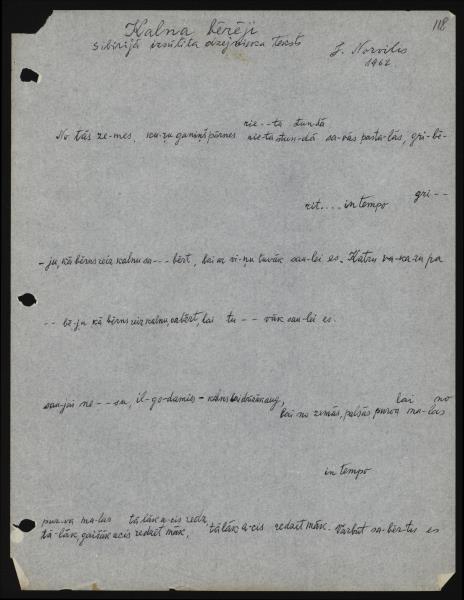 118
Kalna bērēji
Sibirijā izsūtīta dzejnieka teksts
J. Norvilis
1962
rie--ta stun-dā
No tās ze-mes, ku-ŗu ganiņš pārnes rie-ta stun-dā sa-vās pasta-lās, gri-bē-
gri--
rit.... in tempo
-ju, kā bērns reiz kalnu sa---bērt, lai ar vi-ņu tuvāk sau-lei es. Katru va-ka-ru pa
-- bē-ju kā bērns reiz kalnu sabērt, lai tu--vāk sau-lei es.
lai no
sau-jai ne--su, il-go-damies - kalns lai drīzāk aug, lai no zemās, pelēkās purva ma-las
in tempo
pur-va ma-las tā-lāk a-cis redz
tā-lāk, gaišāk acis redzēt māk, tālāk a-cis redzēt māk. Varbūt sa-bēr-tu es